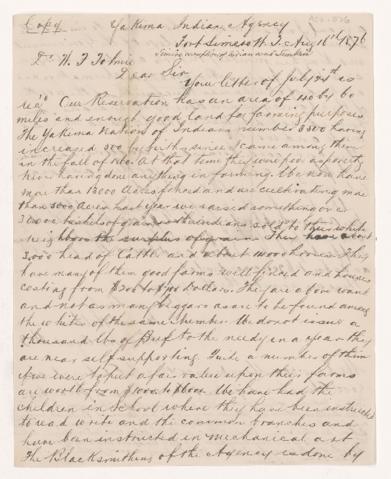 Copy
Yakima Indian Agency
Fort Simcoe W. T. Aug 16th 1876
Dr W. F. Tolmie
Dear Sir
Your letter of July 24th is
Our Reservation has an area of 40 by 60
miles and enough good land for farming purposes
The Yakima Nation of Indians number 3500 having
increased 300 since I came among them
in the fall of At that time they were poor
few having done anything in farming. We now have
more than 13000 Acres fenced and are cultivating more
than 5000 Acres Last year we raised something over
30,000 bushels of grain the indians sold to
neighbors the surplus of grain They have about
3,000 head of Cattle and about 16000 horses. They
have many of them good farms well fenced and houses
costing from to Dollars. They are above want
and not as many beggars as are to be found among
the whites of the same number. We do not issue a
thousand lbs of Beef to the needy in a year they
are near self supporting. Quite a number of them
if we were to put a fair value upon their farms
are worth from to We have had the
children in school where they have been instructed
to read write and the common branches and
have been instructed in mechanical art
The Blacksmithing of the Agency is done by